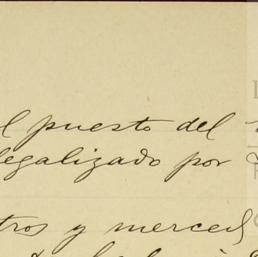 l puesto del
legalizado por
tros y merced